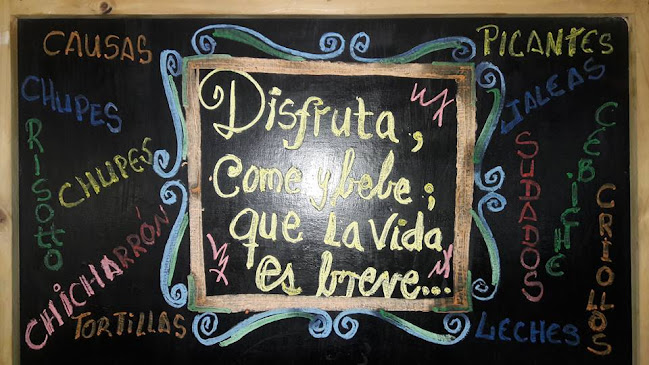 CAUSAS
CHUPES
RISOTTO
CHUPES
CHICHARRÓN
TORTILLAS
Disfruta,
come y bebe;
que la vida
es breve...
PICANTES
JALEAS
SUDADOS
CEBICHE
CRIOLLOS
LECHES